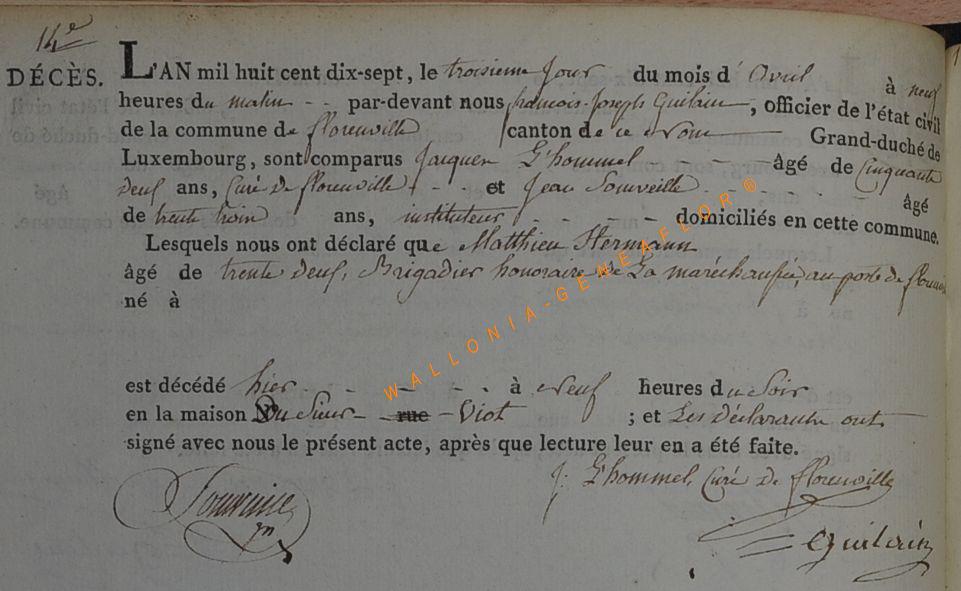 14e
DÉCÈS.
L'AN mil huit cent dix-sept, le troisieme jour du mois d'Avril à neuf
heures du matin - - par-devant nous francois-Joseph Guilain, officier de l'état civil
de la commune de florenville canton de ce nom Grand-duché de
Luxembourg, sont comparus Jacques L'hommel - - - âgé de Cinquante
deuf ans, Curé de florenville - - et Jean Souveille - - - - âgé
de trente trois ans, instituteur - - - - domiciliés en cette commune.
Lesquels nous ont déclaré que Matthieu Hermann
âgé de trente deuf, Brigadier honoraire de La maréchaussée, au poste de
né à
est décédé hier - - - - - à neuf heures du Soir
en la maison Du Sieur - rue - Viot ; et Les Déclarants ont
signé avec nous le présent acte, après que lecture leur en a été faite.
J. L'hommel, Curé de florenville
Souveille
Guilain
WALLONIA-GENEAFLOR ®